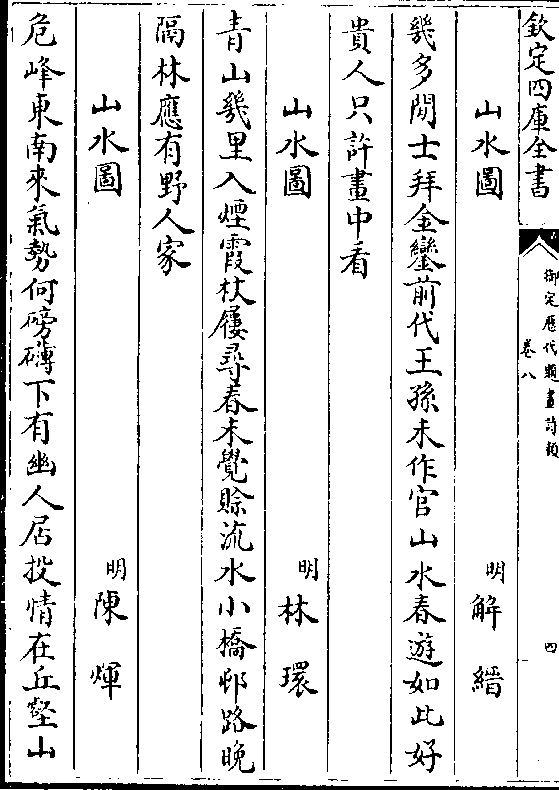 欽定四庫全書
御定歷代題畫詩類
卷八
四
山水圖 明 解縉
幾多閒士拜金鑾前代王孫未作官山水春遊如此好
貴人只許畫中看
山水圖 明 林環
青山幾里入煙霞杖屨尋春未覺賒流水小橋邨路晚
隔林應有野人家
山水圖 明 陳煇
危峰東南來氣勢何磅礴下有幽人居投情在丘壑山